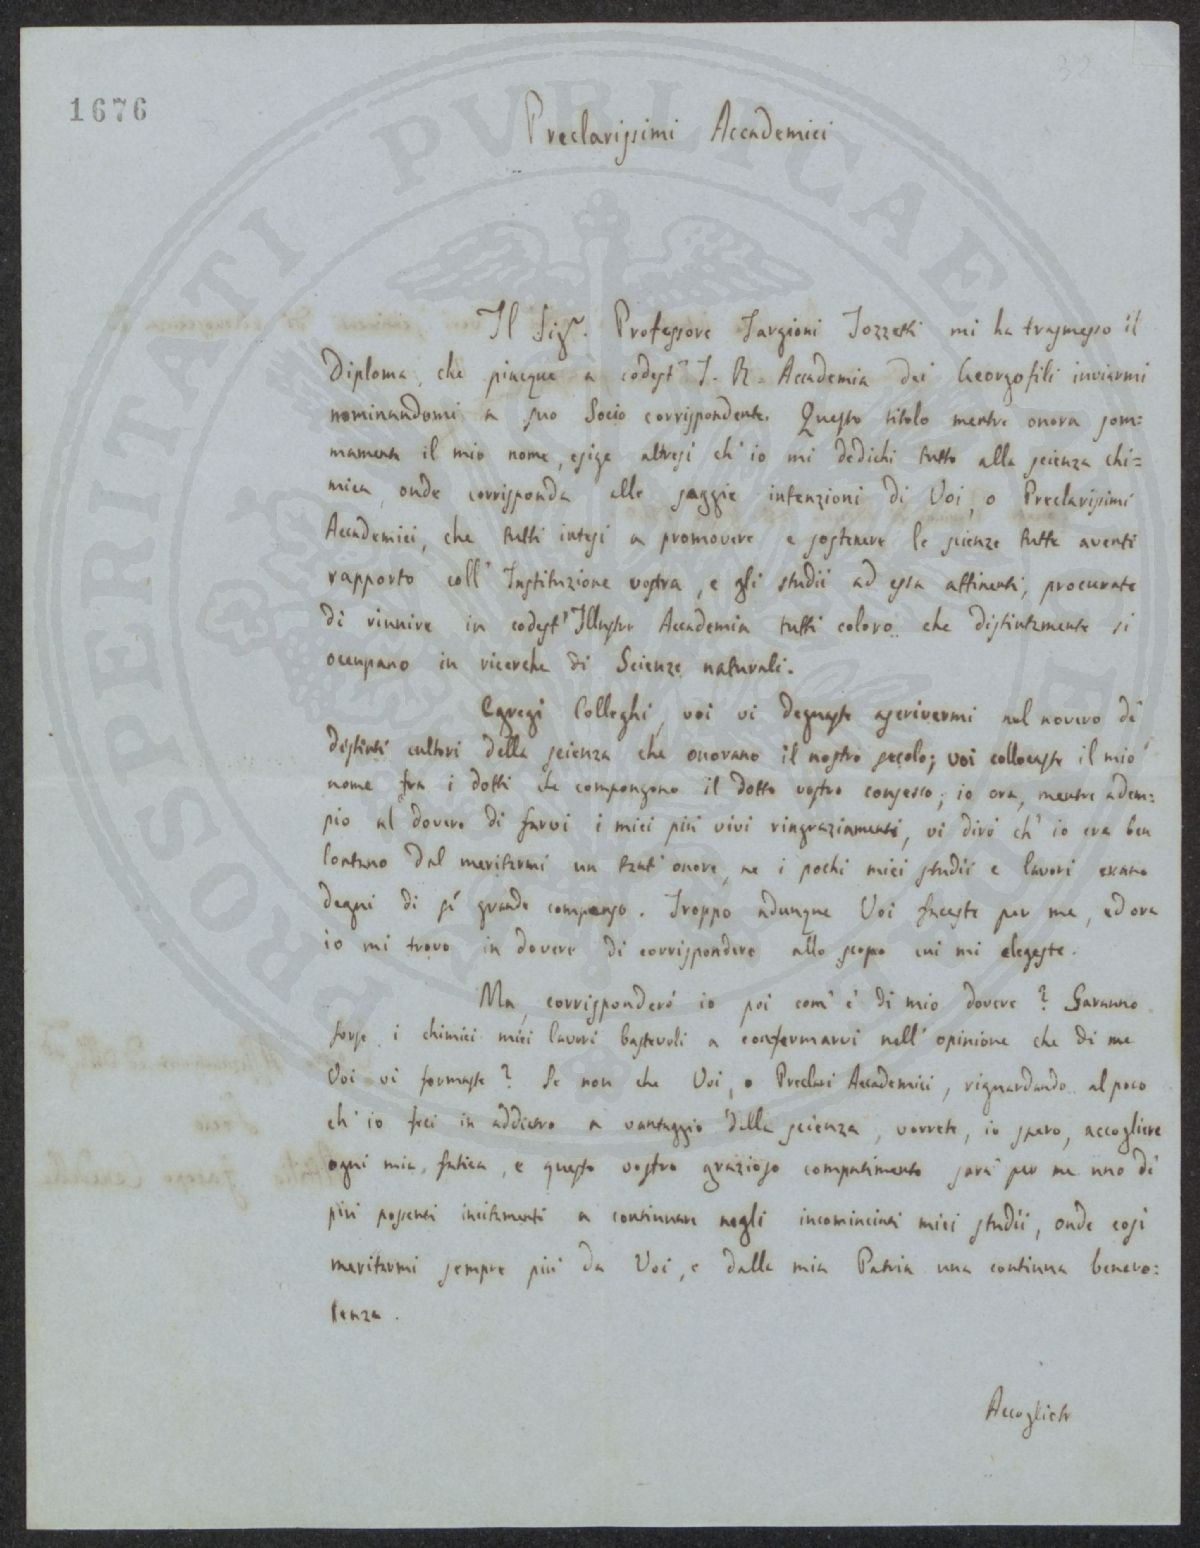 32
1676
Preclarissimi Accademici
Il Sigr. Professore Targioni Tozzetti mi ha trasmesso il
Diploma, che piacque a codest' I. R. Accademia dei Georgofili inviarmi
nominandomi a suo Socio corrispondente. Questo titolo mentre onora som=
mamente il mio nome, esige altresì ch' io mi dedichi tutto alla scienza chi=
mica, onde corrisponda alle saggie intenzioni di Voi, o Preclarissimi
Accademici, che tutti intesi a promovere e sostenere le scienze tutte aventi
rapporto coll' Instituzione vostra, e gli studii ad essa attinenti, procurate
di riunire in codest' Illustre Accademia tutti coloro che distintamente si
occupano in ricerche di Scienze naturali.
Egregi Colleghi, voi vi degnaste ascrivermi nel novero de'
distinti cultori della scienza che onorano il nostro secolo; voi collocaste il mio
nome fra i dotti che compongono il dotto vostro consesso; io ora, mentre adem=
pio al dovere di farvi i miei più vivi ringraziamenti, vi dirò ch' io era ben
lontano dal meritarmi un tant' onore, ne i pochi miei studii e lavori erano
degni di sì grande compenso. Troppo adunque Voi faceste per me, ed ora
io mi trovo in dovere di corrispondere allo scopo cui mi elegeste.
Ma, corrisponderó io poi com' è di mio dovere? Saranno
forse i chimici miei lavori bastevoli a confermarvi nell' opinione che di me
Voi vi formaste? Se non che Voi, o Preclari Accademici, riguardando al poco
ch' io feci in addietro a vantaggio della scienza, vorrete, io spero, accogliere
ogni mia fatica, e questo vostro grazioso compatimento sarà per me uno di
più possenti incitamenti a continuare negli incominciati miei studii, onde così
meritarmi sempre più da Voi, e dalla mia Patria una continua benevo=
lenza.
Accogliete
PROSPERITATI PUBLICAE